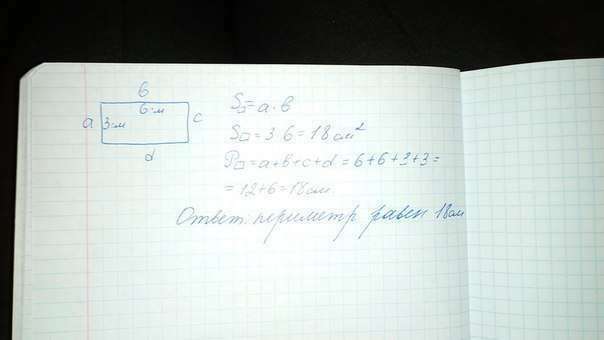 в
6 см
a 3 см c
d
S▭ = a · в
S▭ = 3 · 6 = 18 см²
P▭ = a + в + c + d = 6 + 6 + 3 + 3 =
= 12 + 6 = 18 см
Ответ: периметр равен 18 см